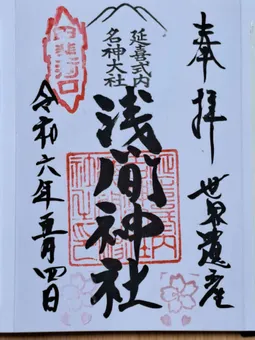 奉拝
世界遺産
延喜式内
名神大社
浅間神社
令和六年五月四日